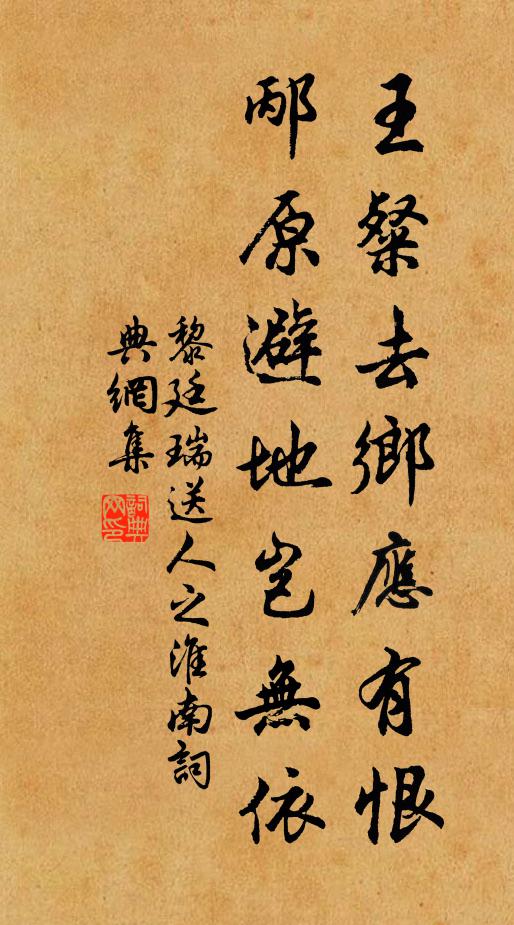 王粲去鄉應有恨
邴原避地豈無依
黎廷瑞送人之淮南詞
典網集
詞典網印